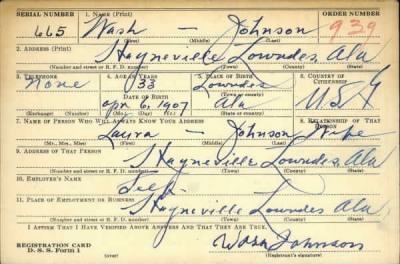 SERIAL NUMBER 1. NAME (Print) ORDER NUMBER
665 Wash — Johnson 939
(First) (Middle) (Last)
2. ADDRESS (Print)
Hayneville Lowndes, Ala
(Number and street or R. F. D. number) (Town) (County) (State)
3. TELEPHONE 4. AGE IN YEARS 5. PLACE OF BIRTH 6. COUNTRY OF CITIZENSHIP
None 33 Lowndes
DATE OF BIRTH (Town or county) U.S.A
Apr 6, 1907 Ala
(Exchange) (Number) (Mo.) (Day) (Yr.) (State or country)
7. NAME OF PERSON WHO WILL ALWAYS KNOW YOUR ADDRESS 8. RELATIONSHIP OF THAT PERSON
Laura — Johnson Wife
(Mr., Mrs., Miss) (First) (Middle) (Last)
9. ADDRESS OF THAT PERSON
Hayneville Lowndes, Ala
(Number and street or R. F. D. number) (Town) (County) (State)
10. EMPLOYER'S NAME
Self
11. PLACE OF EMPLOYMENT OR BUSINESS
Hayneville Lowndes Ala
(Number and street or R. F. D. number) (Town) (County) (State)
I AFFIRM THAT I HAVE VERIFIED ABOVE ANSWERS AND THAT THEY ARE TRUE.
REGISTRATION CARD
D. S. S. Form 1 Johnson